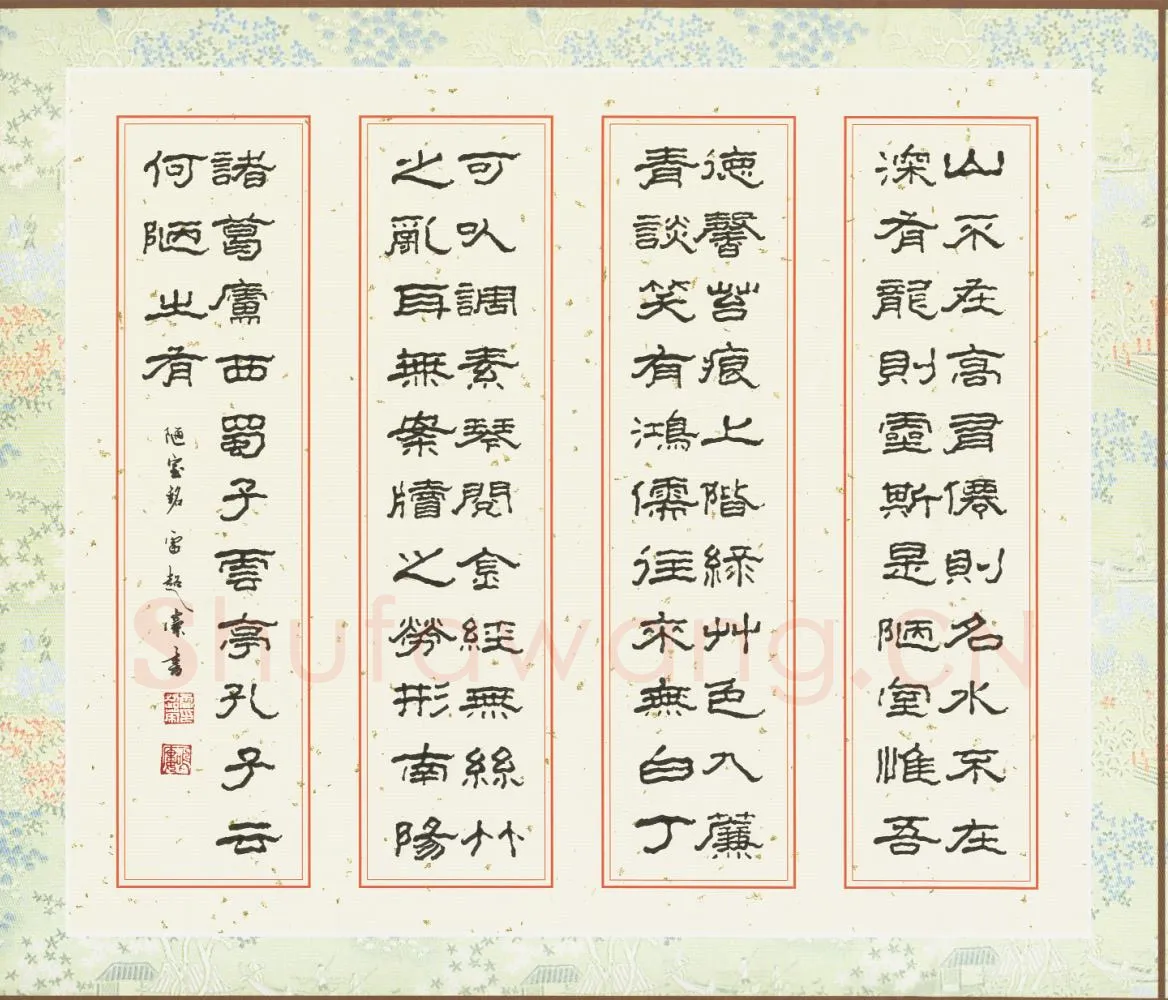 山不在高有僊則名水不在
深有龍則靈斯是陋室惟吾
德馨苔痕上階綠艸色入簾
青談笑有鴻儒往來無白丁
可以調素琴閱金經無絲竹
之亂耳無案牘之勞形南陽
諸葛廬西蜀子雲亭孔子云
何陋之有
陋室銘 雷超 書
Shufawang.CN